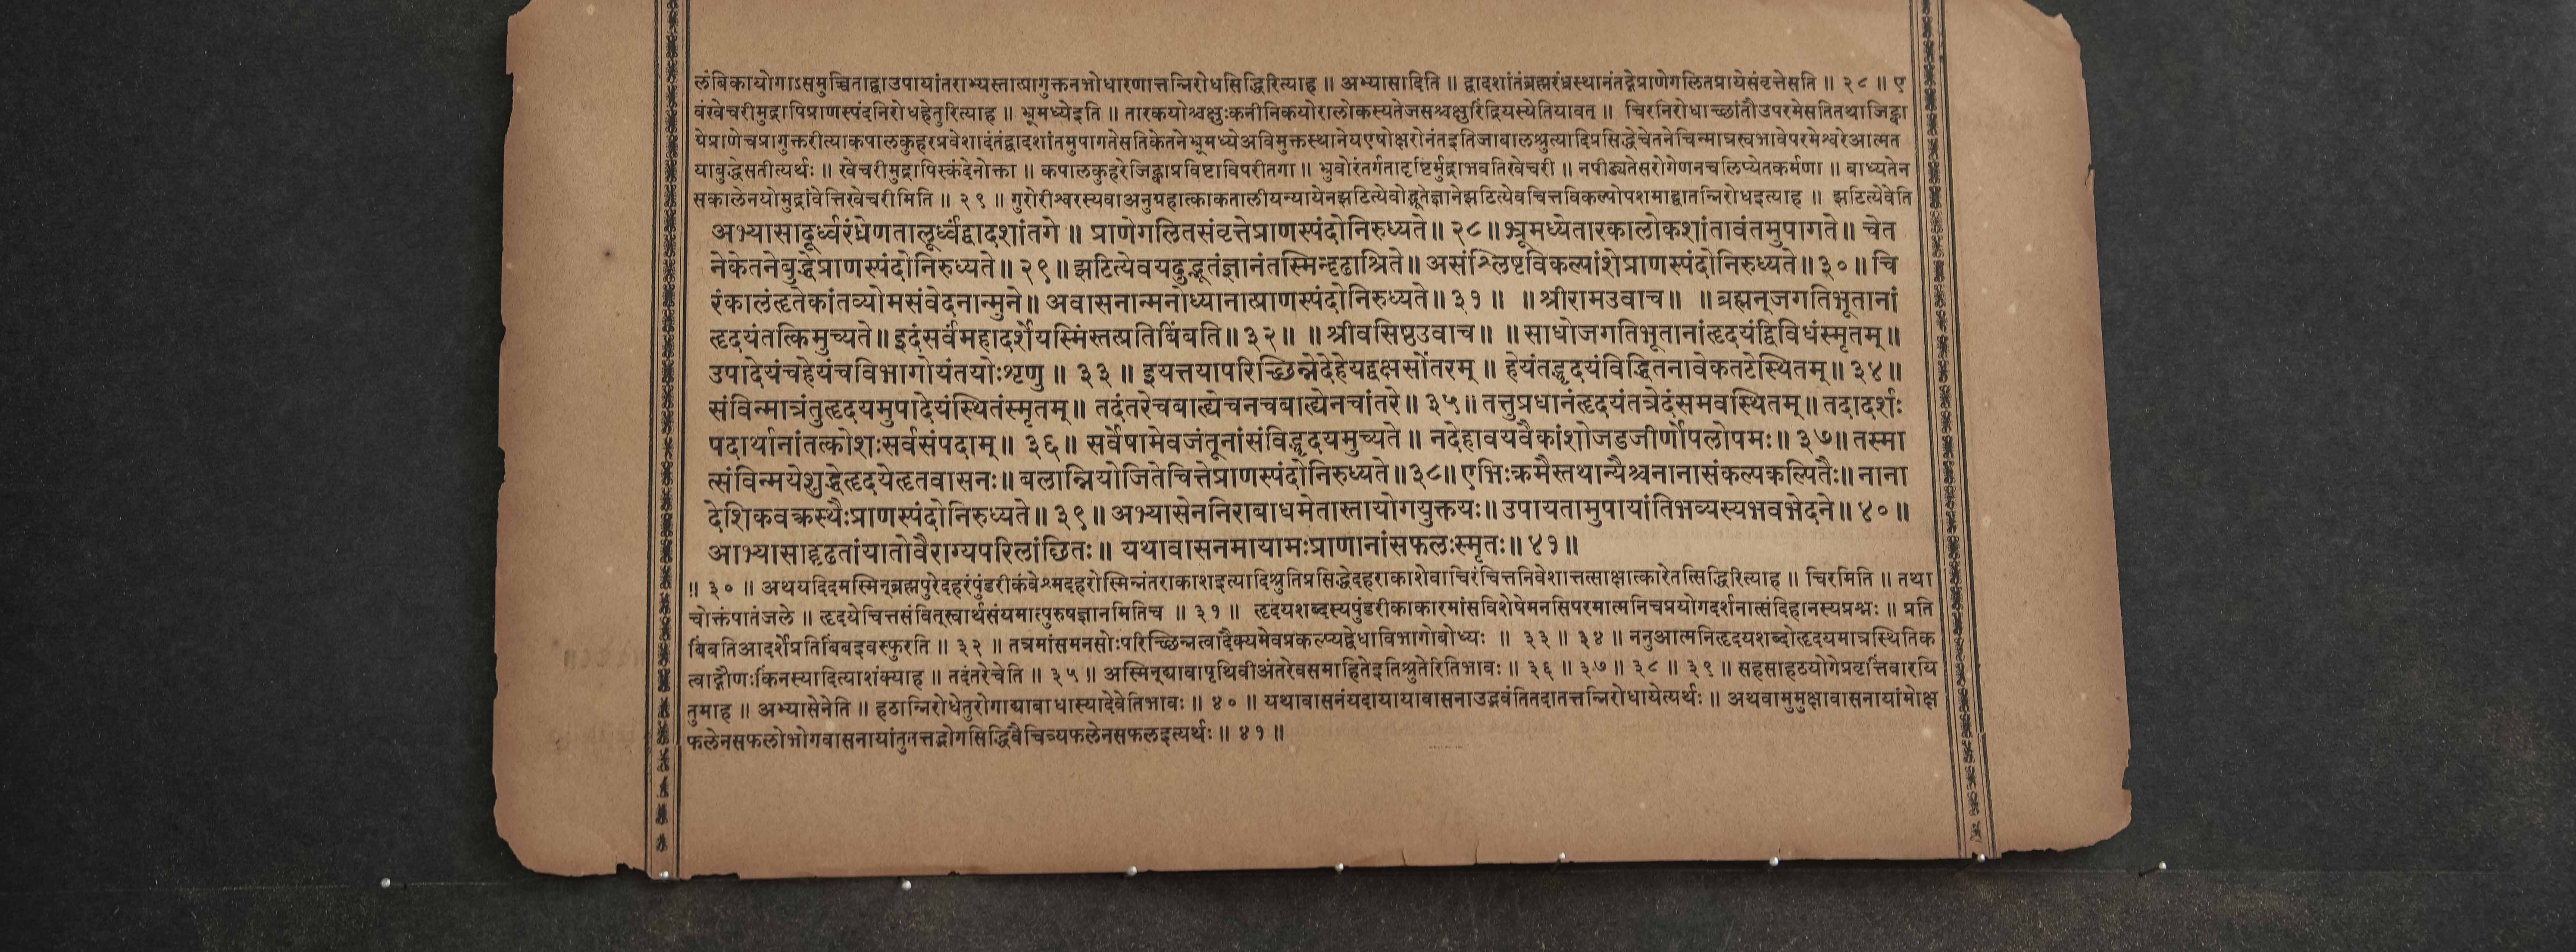 लंबिकायोगाऽसमुच्चिताद्वाउपायांतराभ्यस्तात्प्रागुक्तनभोधारणात्तन्निरोधसिद्धिरित्याह ॥ अभ्यासादिति ॥ द्वादशांतंब्रह्मरंध्रस्थानंतद्गेप्राणेगलितप्रायेसंवृत्तेसति ॥ २८ ॥ ए
वंखेचरीमुद्रापिप्राणस्पंदनिरोधहेतुरित्याह ॥ भ्रूमध्येइति ॥ तारकयोश्चक्षुःकनीनिकयोरालोकस्यतेजसश्चक्षुरिंद्रियस्येतियावत् ॥ चिरनिरोधाच्छांतौउपरमेसतितथाजिह्वा
येप्राणेचप्रागुक्तरीत्याकपालकुहरप्रवेशादंतंद्वादशांतमुपागतेसतिकेतनेभ्रूमध्येअविमुक्तस्थानेयएषोक्षरोनंतइतिजाबालश्रुत्यादिप्रसिद्धेचेतनेचिन्मात्रस्वभावेपरमेश्वरेआत्मत
याबुद्धेसतीत्यर्थः ॥ खेचरीमुद्रापिस्कंदेनोक्ता ॥ कपालकुहरेजिह्वाप्रविष्टाविपरीतगा ॥ भ्रुवोरंतर्गतादृष्टिर्मुद्राभवतिखेचरी ॥ नपीड्यतेसरोगेणनचलिप्येतकर्मणा ॥ बाध्यतेन
सकालेनयोमुद्रांवेत्तिखेचरीमिति ॥ २९ ॥ गुरोरीश्वरस्यवाअनुग्रहात्काकतालीयन्यायेनझटित्येवोद्भूतेज्ञानेझटित्येवचित्तविकल्पोपशमाद्वातन्निरोधइत्याह ॥ झटित्येवेति
अभ्यासादूर्ध्वरंध्रेणतालूर्ध्वंद्वादशांतगे ॥ प्राणेगलितसंवृत्तेप्राणस्पंदोनिरुध्यते ॥ २८ ॥ भ्रूमध्येतारकालोकशांतावंतमुपागते ॥ चेत
नेकेतनेबुद्धेप्राणस्पंदोनिरुध्यते ॥ २९ ॥ झटित्येवयदुद्भूतंज्ञानंतस्मिन्दृढाश्रिते ॥ असंश्लिष्टविकल्पांशेप्राणस्पंदोनिरुध्यते ॥ ३० ॥ चि
रंकालंहृतेकांतव्योमसंवेदनान्मुने ॥ अवासनान्मनोध्यानात्प्राणस्पंदोनिरुध्यते ॥ ३१ ॥ ॥ श्रीरामउवाच ॥ ॥ ब्रह्मन्जगतिभूतानां
हृदयंतत्किमुच्यते ॥ इदंसर्वंमहादर्शेयस्मिंस्तत्प्रतिबिंबति ॥ ३२ ॥ ॥ श्रीवसिष्ठउवाच ॥ ॥ साधोजगतिभूतानांहृदयंद्विविधंस्मृतम् ॥
उपादेयंचहेयंचविभागोयंतयोःशृणु ॥ ३३ ॥ इयत्तयापरिच्छिन्नेदेहेयद्वक्षसोंतरम् ॥ हेयंतद्धृदयंविद्धितनावेकतटेस्थितम् ॥ ३४ ॥
संविन्मात्रंतुहृदयमुपादेयंस्थितंस्मृतम् ॥ तदंतरेचबाह्येचनचबाह्येनचांतरे ॥ ३५ ॥ तत्तुप्रधानंहृदयंतत्रेदंसमवस्थितम् ॥ तदादर्शः
पदार्थानांतत्कोशःसर्वसंपदाम् ॥ ३६ ॥ सर्वेषामेवजंतूनांसंविद्धृदयमुच्यते ॥ नदेहावयवैकांशोजडजीर्णोपलोपमः ॥ ३७ ॥ तस्मा
त्संविन्मयेशुद्धेहृदयेहृतवासनः ॥ बलान्नियोजितेचित्तेप्राणस्पंदोनिरुध्यते ॥ ३८ ॥ एभिःक्रमैस्तथान्यैश्चनानासंकल्पकल्पितैः ॥ नाना
देशिकवक्त्रस्थैःप्राणस्पंदोनिरुध्यते ॥ ३९ ॥ अभ्यासेननिराबाधमेतास्तायोगयुक्तयः ॥ उपायतामुपायांतिभव्यस्यभवभेदने ॥ ४० ॥
आभ्यासाद्दृढतांयातोवैराग्यपरिलांछितः ॥ यथावासनमायामःप्राणानांसफलःस्मृतः ॥ ४१ ॥
॥ ३० ॥ अथयदिदमस्मिन्ब्रह्मपुरेदहरंपुंडरीकंवेश्मदहरोस्मिन्नंतराकाशइत्यादिश्रुतिप्रसिद्धेदहराकाशेवाचिरंचित्तनिवेशात्तत्साक्षात्कारेतत्सिद्धिरित्याह ॥ चिरमिति ॥ तथा
चोक्तंपातंजले ॥ हृदयेचित्तसंवित्स्वार्थसंयमात्पुरुषज्ञानमितिच ॥ ३१ ॥ हृदयशब्दस्यपुंडरीकाकारमांसविशेषेमनसिपरमात्मनिचप्रयोगदर्शनात्संदिहानस्यप्रश्नः ॥ प्रति
बिंबतिआदर्शेप्रतिबिंबइवस्फुरति ॥ ३२ ॥ तत्रमांसमनसोःपरिच्छिन्नत्वादैक्यमेवप्रकल्प्यद्वेधाविभागोबोध्यः ॥ ३३ ॥ ३४ ॥ ननुआत्मनिहृदयशब्दोहृदयमात्रस्थितिक
त्वाद्गौणःकिंनस्यादित्याशंक्याह ॥ तदंतरेचेति ॥ ३५ ॥ अस्मिन्द्यावापृथिवीअंतरेवसमाहितेइतिश्रुतेरितिभावः ॥ ३६ ॥ ३७ ॥ ३८ ॥ ३९ ॥ सहसाहठयोगेप्रवृत्तिंवारयि
तुमाह ॥ अभ्यासेनेति ॥ हठान्निरोधेतुरोगाद्याबाधास्यादेवेतिभावः ॥ ४० ॥ यथावासनंयदायायावासनाउद्भवंतितदातत्तन्निरोधायेत्यर्थः ॥ अथवामुमुक्षावासनायांमोक्ष
फलेनसफलोभोगवासनायांतुतत्तद्भोगसिद्धिवैचित्र्यफलेनसफलइत्यर्थः ॥ ४१ ॥